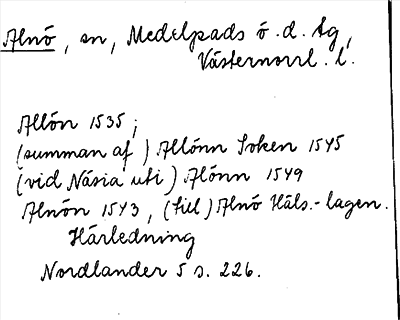 Alnö, sn, Medelpads ö. d. tg,
Västernorrl. l.
Allön 1535;
(summan af) Allönn Soken 1545
(vid Näsia uti) Alönn 1549
Alnön 1543, (till) Alnö Häls.-lagen.
Härledning
Nordlander 5 s. 226.